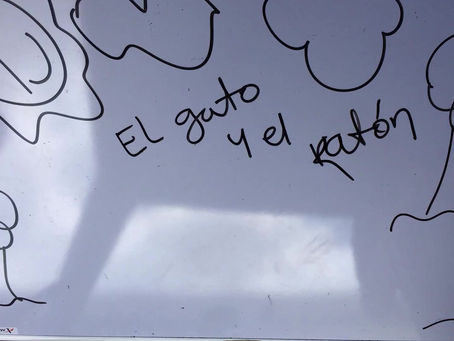 EL gato
y el ratón